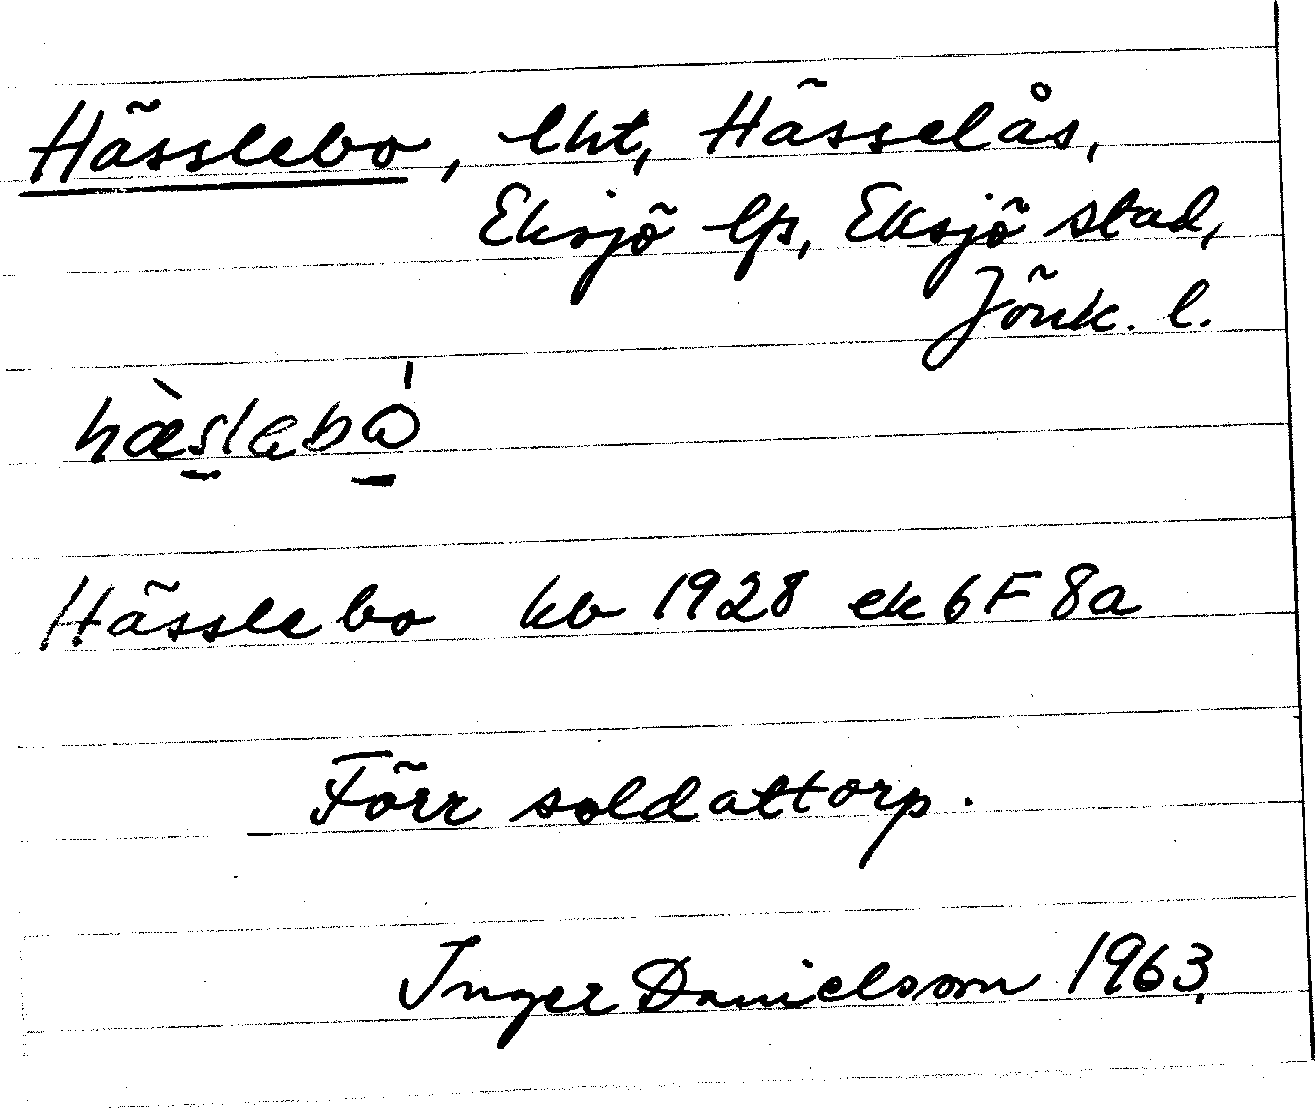 Hässlebo, lht, Hässelås,
Eksjö lfs, Eksjö stad,
Jönk. l.
hæ̀slabò̱
Hässlebo kb 1928 ek 6F 8a
Förr soldattorp.
Inger Danielsson 1963.